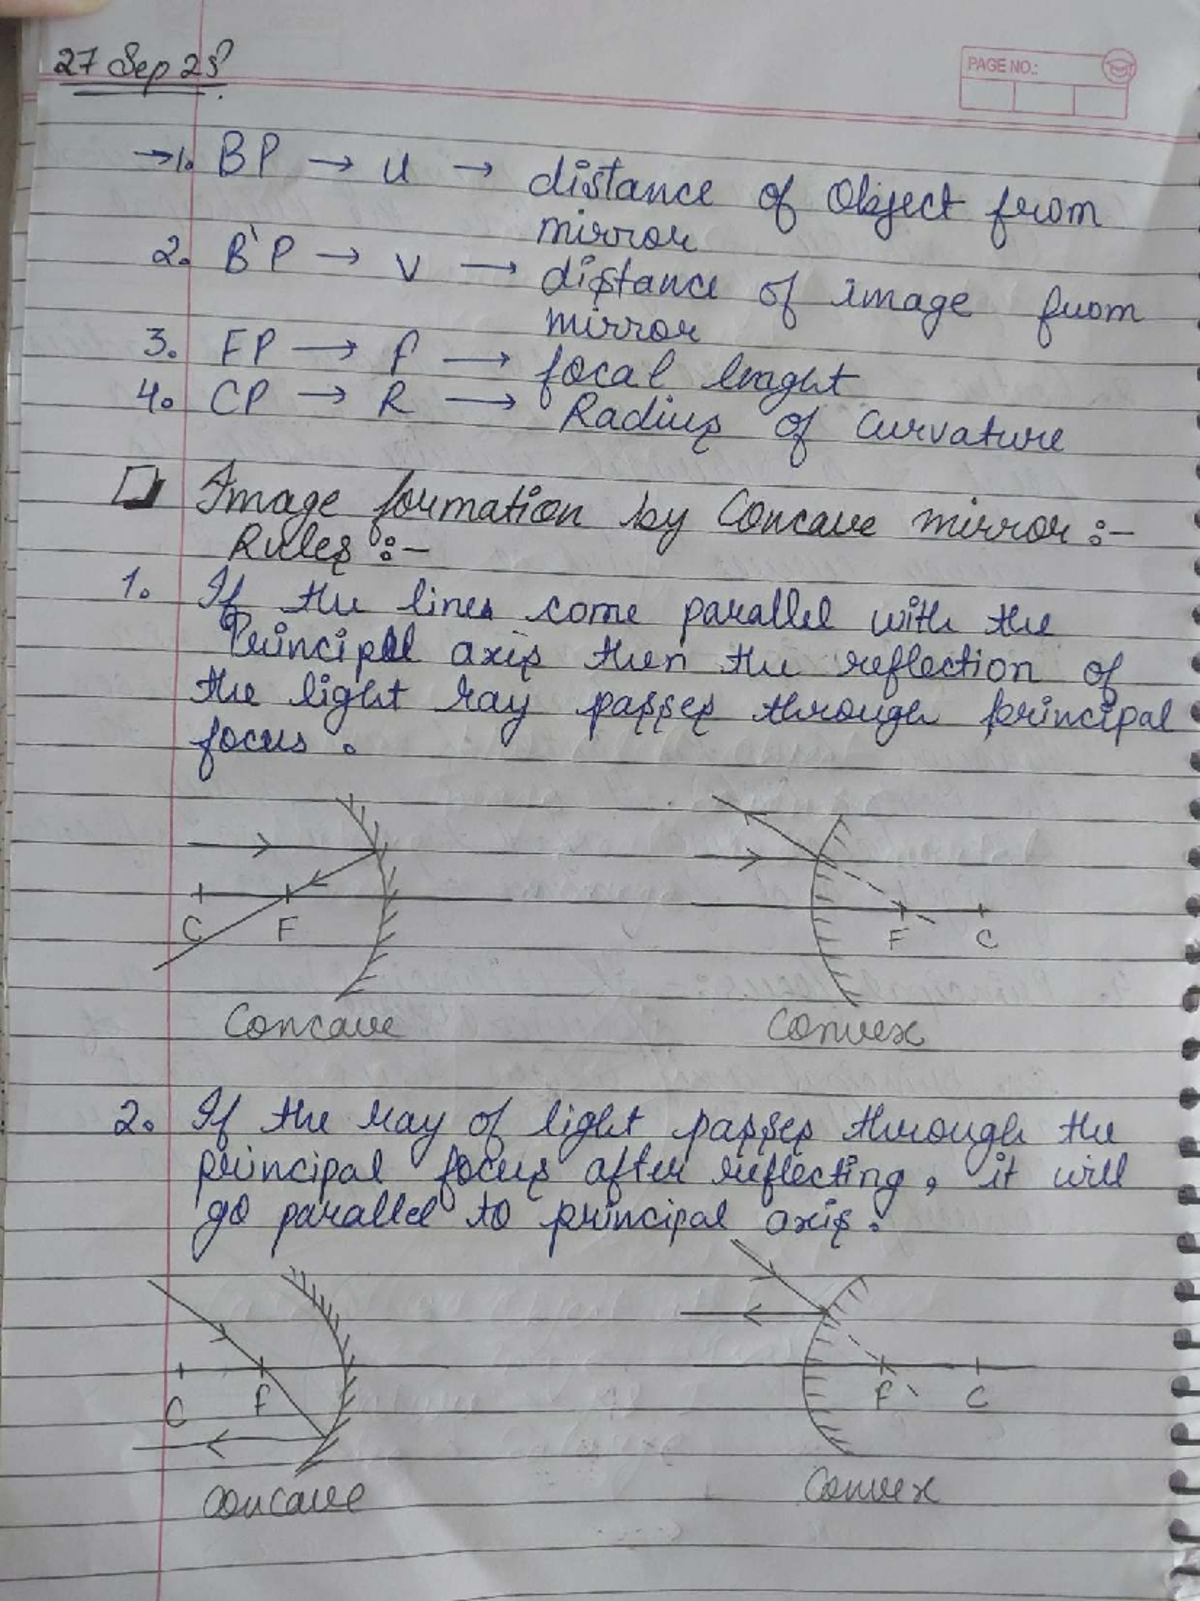 27 Sep 23
PAGE NO.:
→1. BP → u → distance of Object from
mirror
2. B'P → v → distance of image from
mirror
3. FP → f → focal lenght
4. CP → R → Radius of Curvature
Image formation by Concave mirror :-
Rules :-
1. If the lines come parallel with the
Principal axis then the reflection of
the light ray passes through principal
focus.
C F
F C
Concave Convex
2. If the ray of light passes through the
principal focus after reflecting, it will
go parallel to principal axis.
C F
F C
Concave Convex